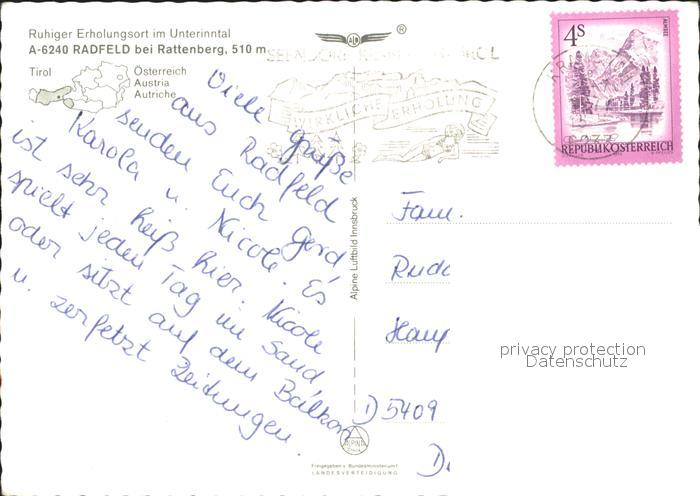 Ruhiger Erholungsort im Unterinntal
A-6240 RADFELD bei Rattenberg, 510 m
Tirol
Österreich
Austria
Autriche
ALPINE
®
WIRKLICHE ERHOLUNG
4S
ALMSEE
REPUBLIK ÖSTERREICH
Viele grüße
aus Radfeld
senden Euch Gerd,
Karola u. Nicole. Es
ist sehr heiß hier. Nicole
spielt jeden Tag im Sand,
oder sitzt auf dem Balkon
u. zerfetzt Zeitungen.
Alpine Luftbild Innsbruck
Fam.
Rud
Hau
D 5409
D.
privacy protection
Datenschutz
ALPINE
Freigegeben v. Bundesministerium f.
LANDESVERTEIDIGUNG